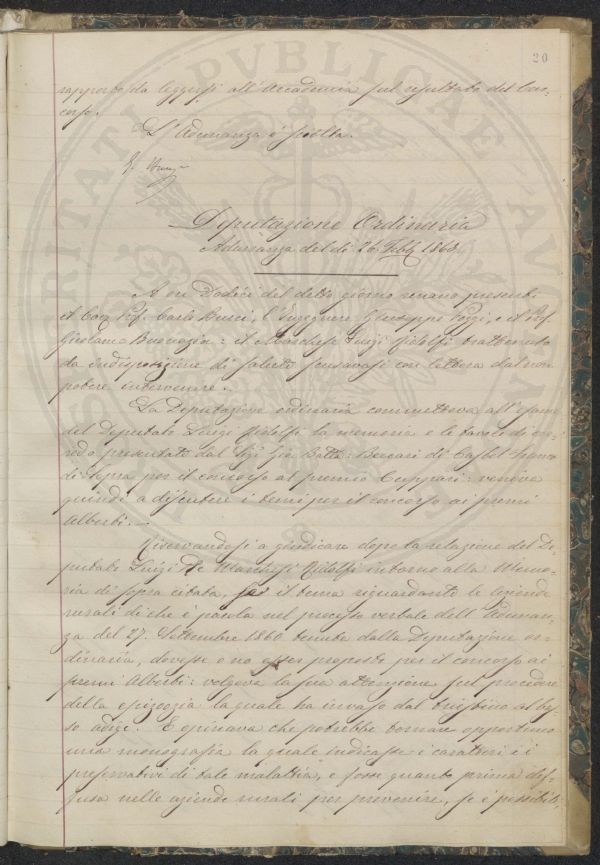 20
rapporto da leggersi all'Accademia sul resultato del Con-
corso.
L'Adunanza è sciolta.
Deputazione Ordinaria
Adunanza del dì 26 Febb. 1863.
A ore Dodici del detto giorno erano presenti
il Cav. Prof. Carlo Burci, l'Ingegnere Giuseppe Poggi, e il Prof.
Girolamo Buonazia: il Marchese Luigi Ridolfi trattenuto
da indisposizione di salute scusavasi con lettera dal non
potere intervenire.
La Deputazione ordinaria commetteva all'esame
del Deputato Luigi Ridolfi la memoria e le tavole di cor-
redo presentate dal Sig. Gio. Batta: Beccari di Castel
di Sopra per il concorso al premio Cuppari: veniva
quindi a discutere i temi per il concorso ai premi
Alberti. —
Riservandosi a giudicare dopo la relazione del De-
putato Luigi De Marchesi Ridolfi intorno alla Memo-
ria di sopra citata, se il tema riguardante le aziende
rurali di che è parola nel processo verbale dell'Adunan-
za del 27. Settembre 1860 tenuta dalla Deputazione or-
dinaria, dovesse o no esser proposto per il concorso ai
premi Alberti: volgeva la sua attenzione sul procedere
della epizoozia la quale ha invaso dal triestino al bas-
so adige. E opinava che potrebbe tornare opportuno
una monografia la quale indicasse i caratteri e i
preservativi di tale malattia, e fosse quanto prima dif-
fusa nelle aziende rurali per prevenire, se è possibile,